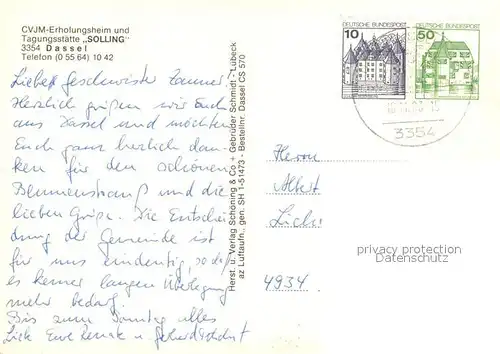 CVJM-Erholungsheim und
Tagungsstätte „SOLLING"
3354 Dassel
Telefon (0 55 64) 10 42
Liebe Geschwister
Herzlich grüßen wir Euch
aus Dassel und möchten
Euch ganz herzlich dan-
ken für den schönen
Blumenstrauß und die
lieben Grüße. Die Entschei-
dung der Gemeinde ist
für uns eindeutig, so daß
es keiner langen Überlegung
mehr bedarf.
Bis zum Sonntag alles
Liebe Eure Renate u.
Herst. u. Verlag Schöning & Co + Gebrüder Schmidt - Lübeck
az Luftaufn., gen. SH 1-51473 - Bestellnr. Dassel CS 570
10
DEUTSCHE BUNDESPOST
50
DEUTSCHE BUNDESPOST
3354
Herrn
Albert
4934
privacy protection
Datenschutz